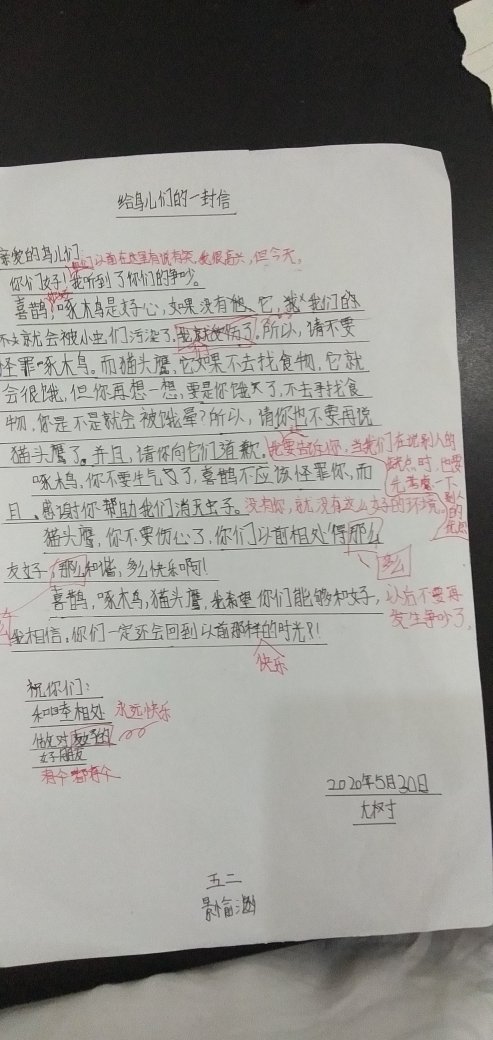 给鸟儿们的一封信
亲爱的鸟儿们:
你们以前在这里有说有笑,我很高兴,但今天,
你们好!我听到了你们的争吵。
喜鹊,啄木鸟是好心,如果没有他它,我我们的
就会被小虫们污染了,所以,请不要
怪罪啄木鸟。而猫头鹰,它如果不去找食物,它就
会很饿,但你再想一想,要是你饿了,不去寻找食
物,你是不是就会被饿晕?所以,请你也不要再说
猫头鹰了。并且,请你向它们道歉。我要告诉你,当我们在说别人的
缺点时,也要
先考虑一下
别人的
优点
啄木鸟,你不要生气了,喜鹊不应该怪罪你,而
且,感谢你帮助我们消灭虫子。没有你,就没有这么好的环境。
猫头鹰,你不要伤心了,你们以前相处得那么
多么
友好,那么和谐,多么快乐啊!
喜鹊,啄木鸟,猫头鹰,我希望你们能够和好,以后不要再
发生争吵了。
我相信,你们一定还会回到以前那样的时光!
快乐
祝你们:
和睦相处 永远快乐
做对
好朋友
2020年5月30日
大树
五二